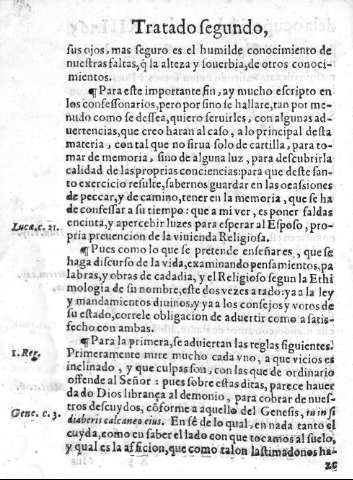 Tratado segundo,
sus ojos, mas seguro es el humilde conocimiento de
nuestras faltas, q̃ la alteza y souerbia, de otros conoci-
mientos.
¶Para este importante fin, ay mucho escripto en
los confessonarios, pero por si no se hallare, tan por me-
nudo como se dessea, quiero seruirles, con algunas ad-
uertencias, que creo haran al caso, a lo principal desta
materia, con tal que no sirua solo de cartilla, para to-
mar de memoria, sino de alguna luz, para descubrir la
calidad de las proprias conciencias: para que deste san-
to exercicio resulte, sabernos guardar en las ocassiones
de peccar, y de camino, tener en la memoria, que se ha
de confessar a su tiempo: que a mi ver, es poner faldas
Lucæ, c. 21.
en cinta, y apercebir luzes para esperar al Esposo, pro-
pria preuencion de la viuienda Religiosa.
¶Pues como lo que se pretende enseñar es, que se
haga discurso de la vida, examinando pensamientos, pa
labras, y obras de cada dia, y el Religioso segun la Ethi
mologia de su nombre, este dos vezes atado: ya a la ley
y mandamientos diuinos, y ya a los consejos y votos de
su estado, correle obligacion de aduertir como a satis-
fecho con ambas.
¶Para la primera, se aduiertan las reglas siguientes.
1. Reg.
Primeramente mire mucho cada vno, a que vicio es
inclinado, y que culpas son, con las que de ordinario
offende al Señor: pues sobre estas ditas, parece hauer
dado Dios librança al demonio, para cobrar de nues-
tros descuydos, cõforme a aquello del Genesis, tu insi
Gene. c. 3.
diaberis calcaneo eius. En fè de lo qual, en nada tanto el
cuyda, como en saber el lado con que tocamos al suelo,
y qual es la afficion, que como talon lastimado nos ha-
ze